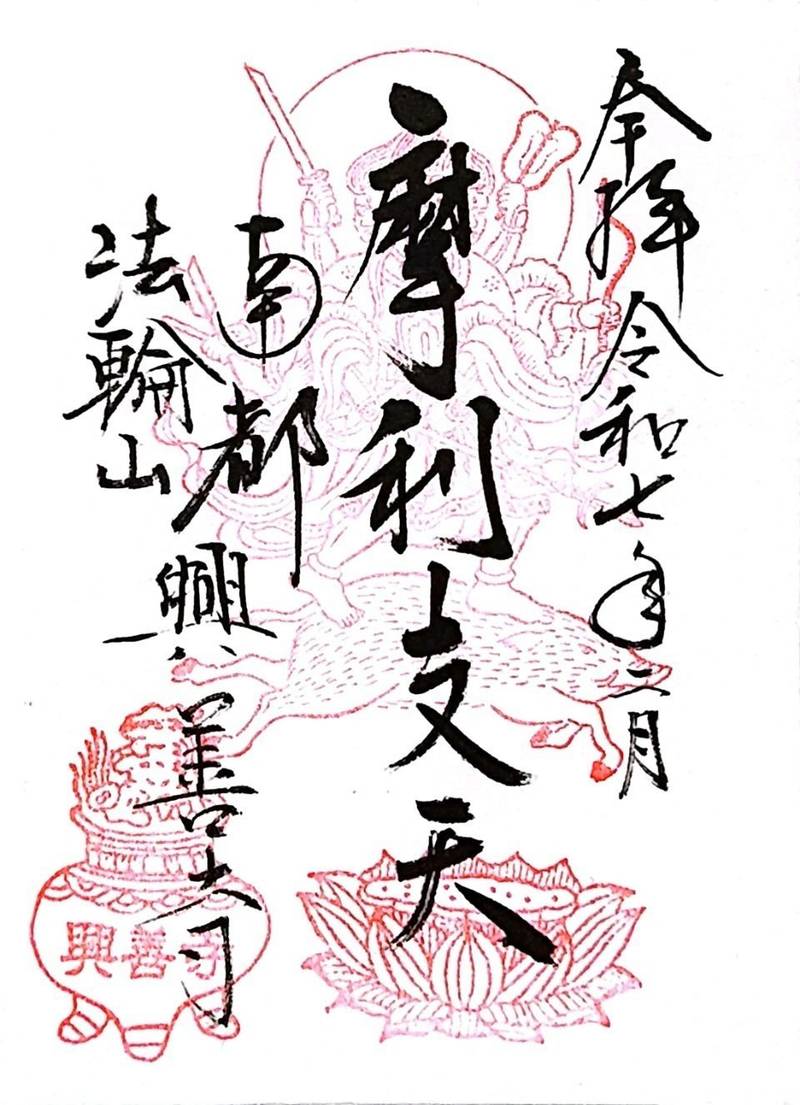 奉拝 令和七年二月
摩利支天
南都
法輪山
興善寺
興善寺